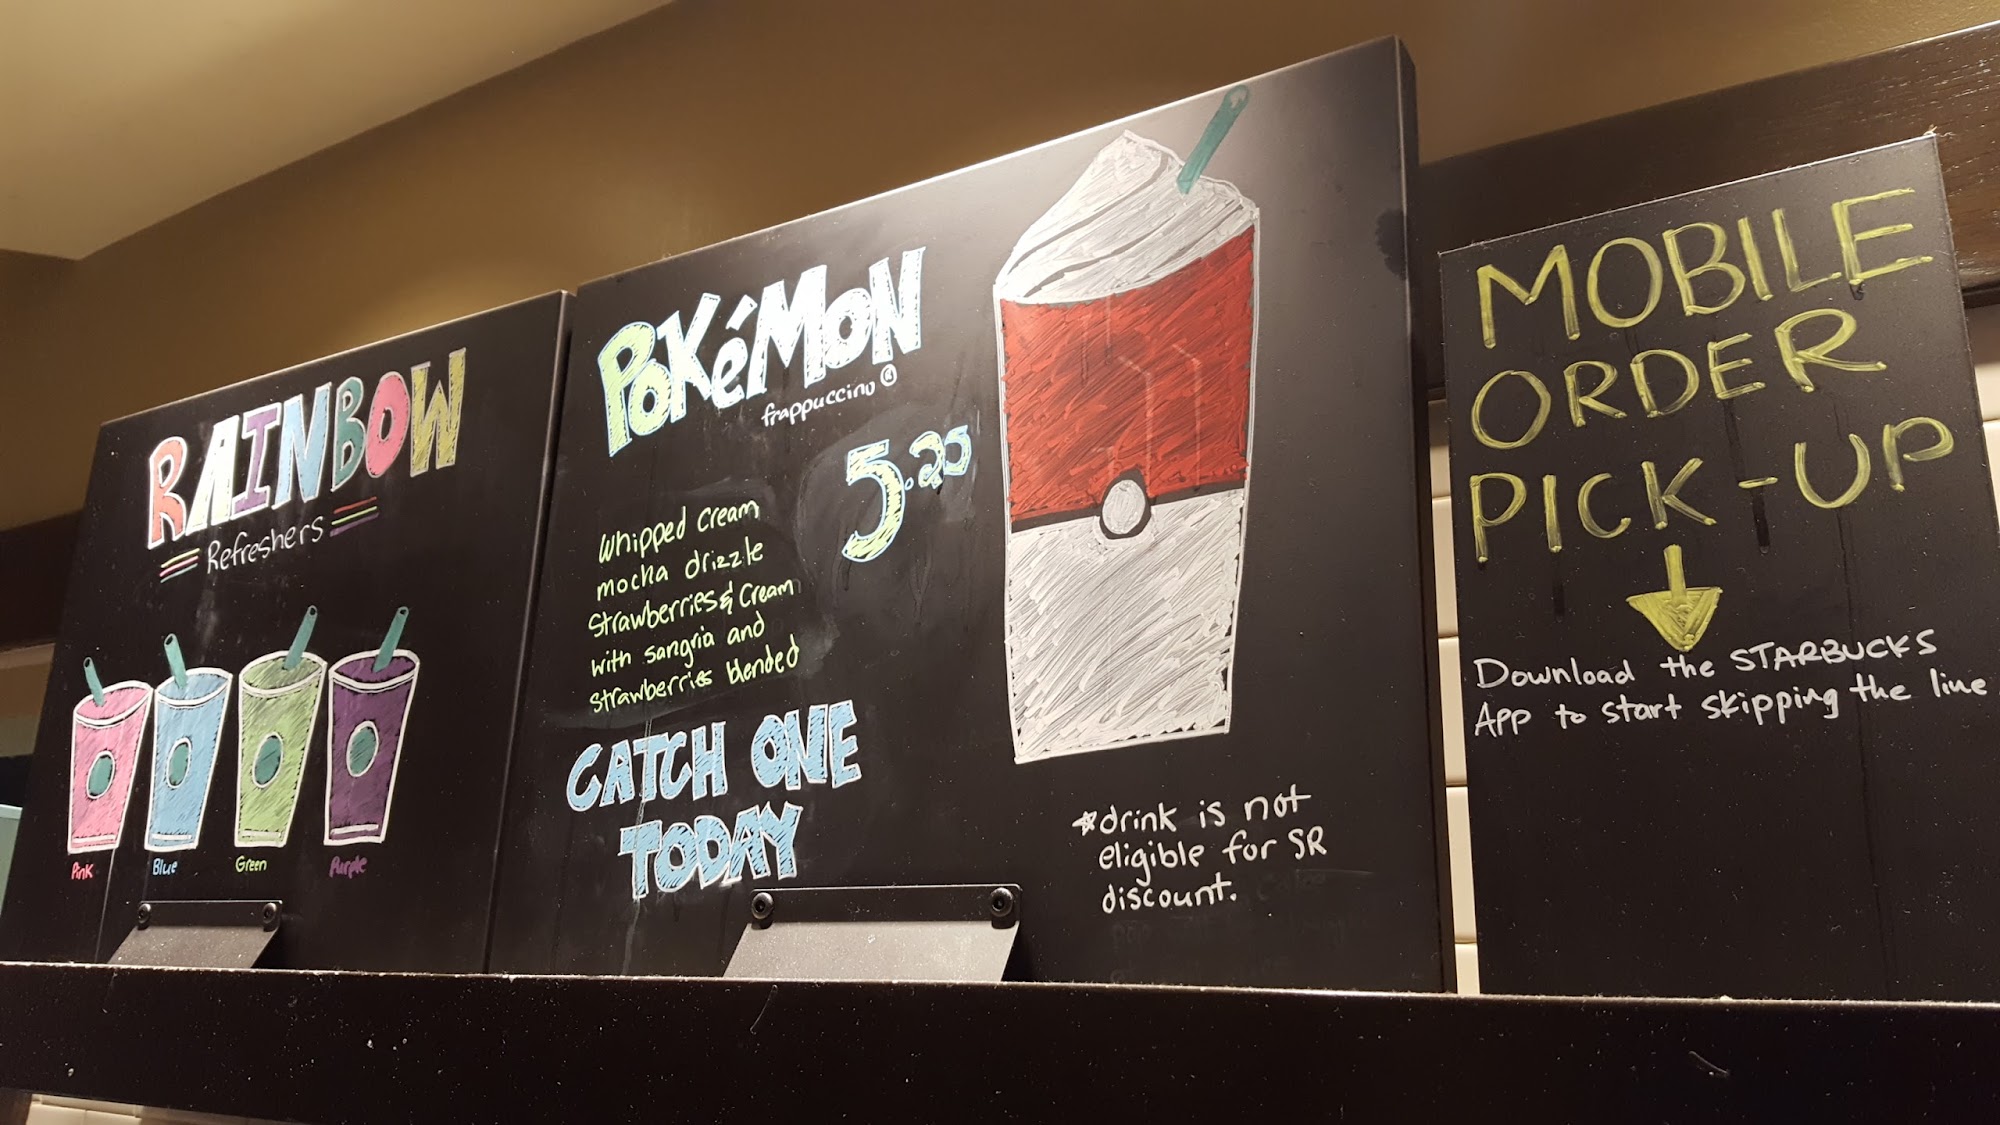 RAINBOW
Refreshers
Pink
Blue
Green
Purple
POKéMON
frappuccino ®
5.25
whipped cream
mocha drizzle
Strawberries & Cream
with sangria and
strawberries blended
CATCH ONE
TODAY
*drink is not
eligible for SR
discount.
MOBILE
ORDER
PICK-UP
Download the STARBUCKS
APP to start skipping the line